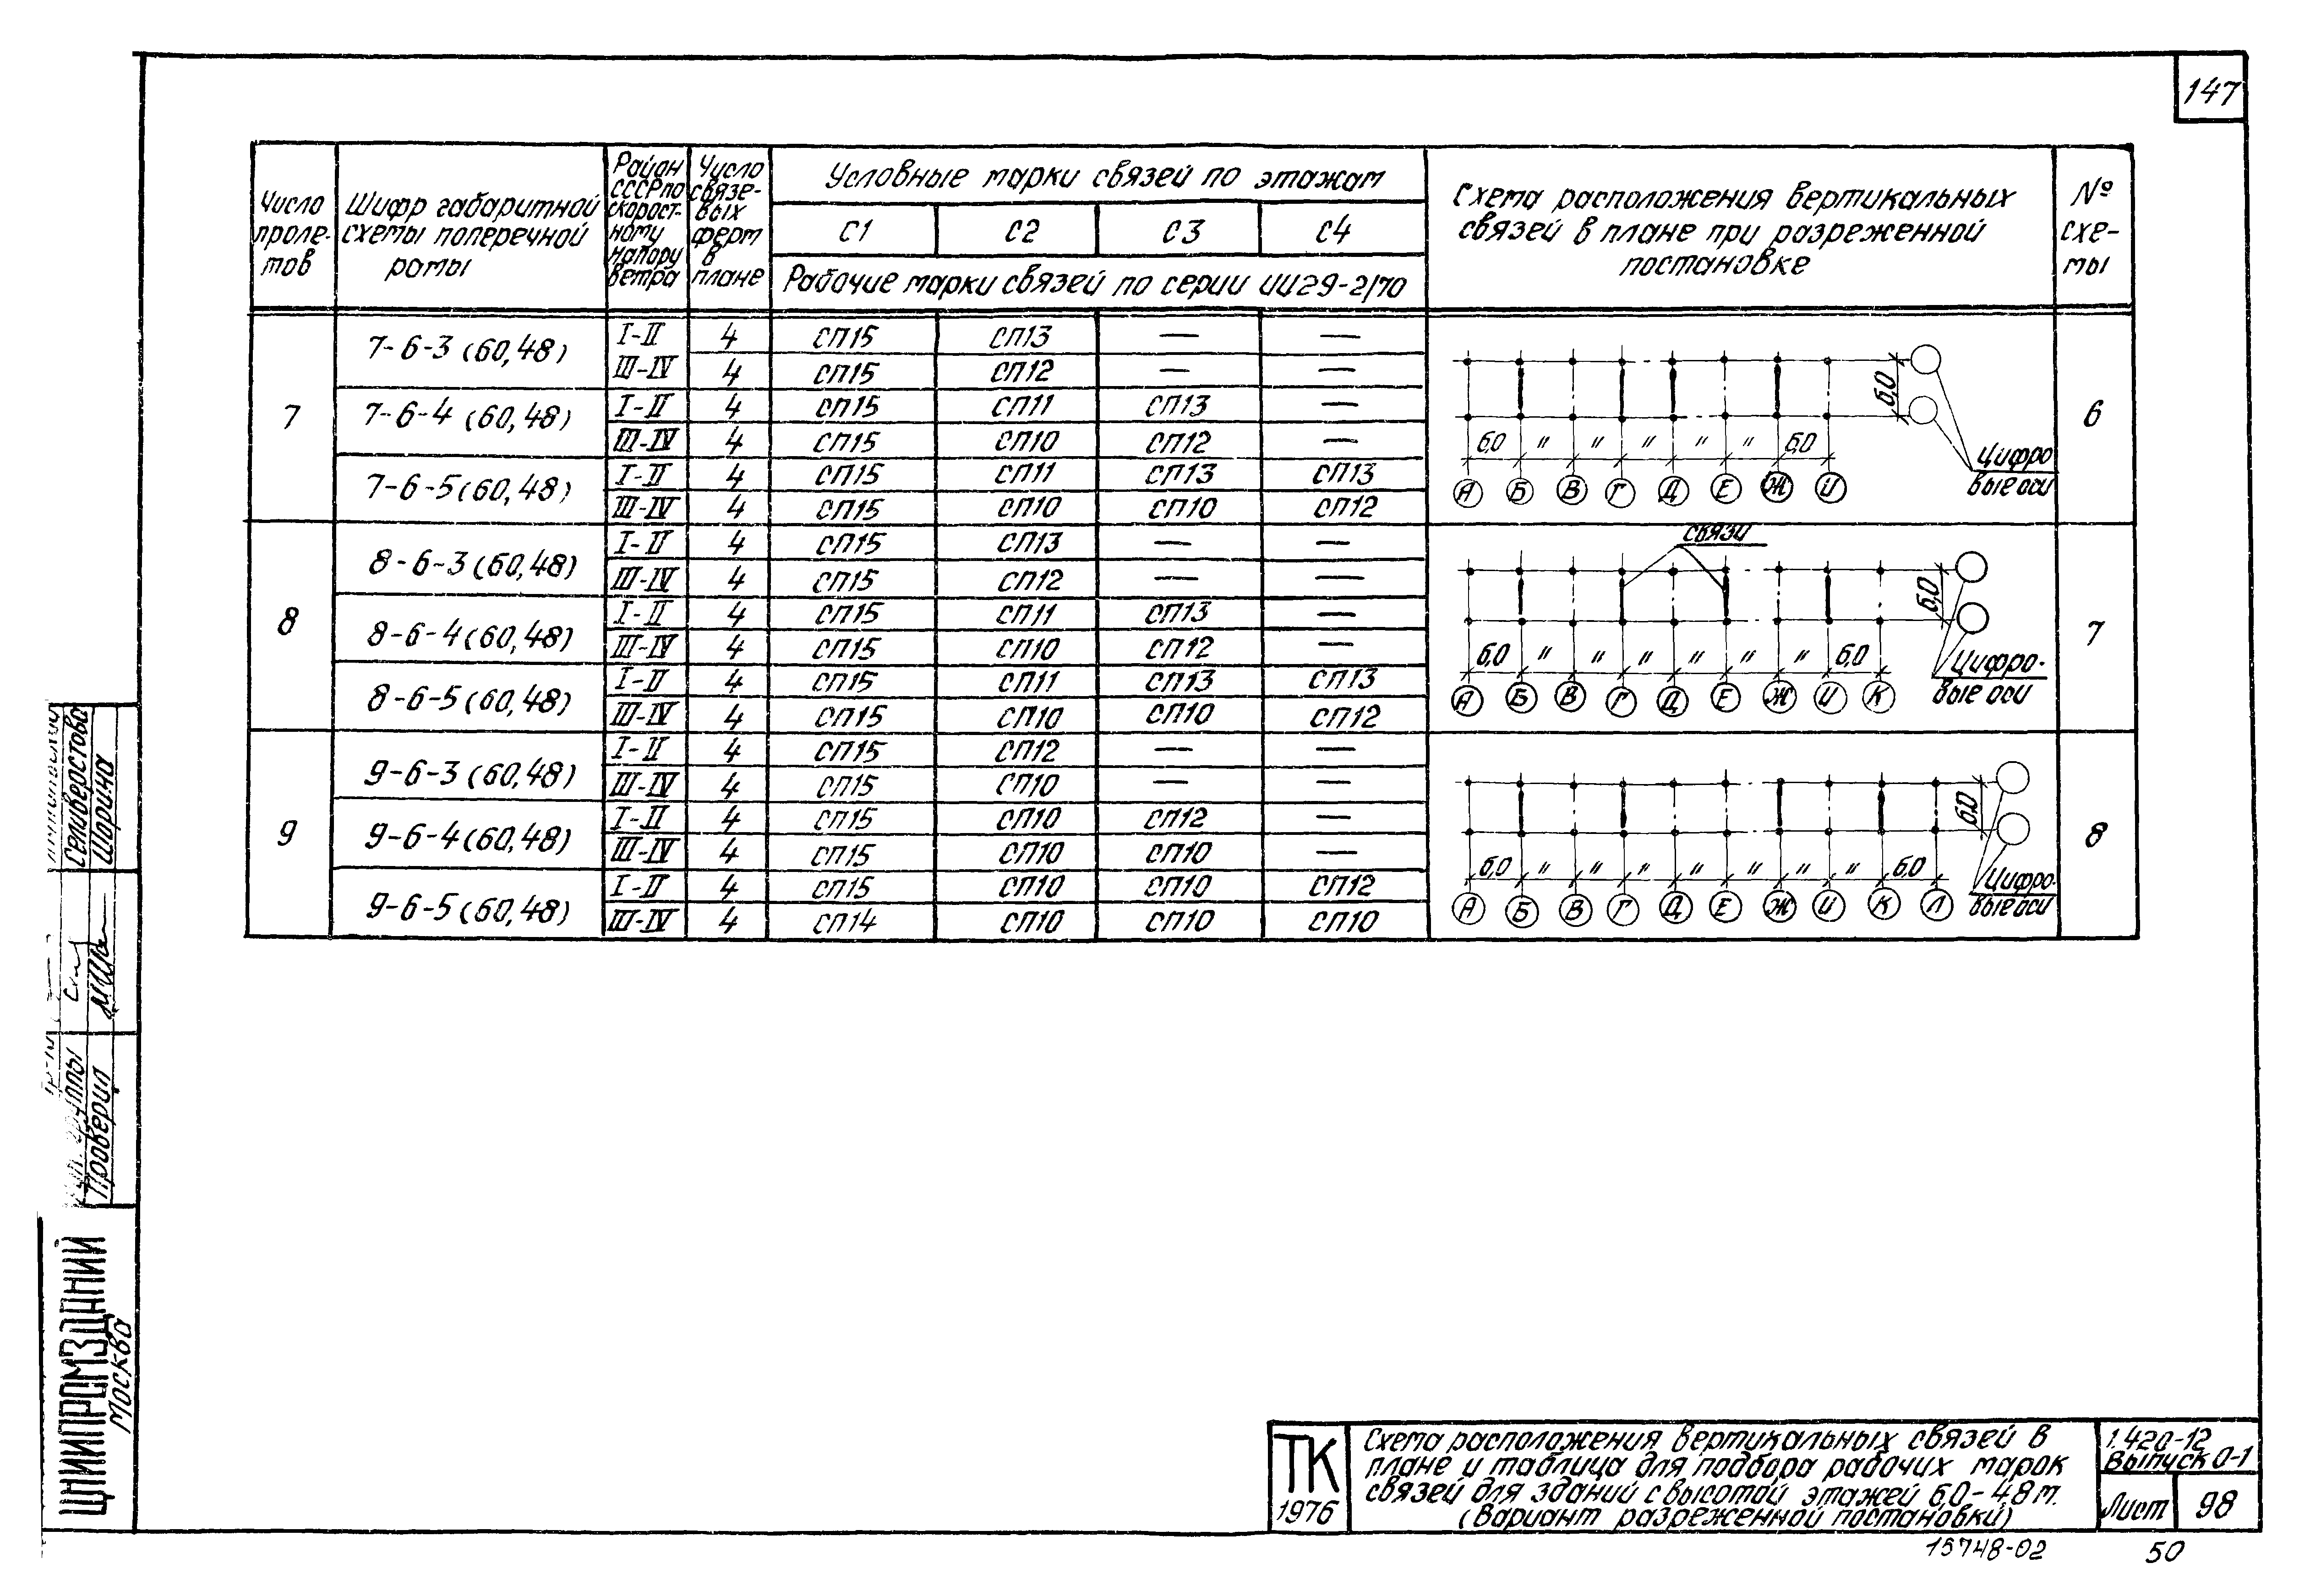 147
Число пролетов
Шифр габаритной схемы поперечной рамы
Район СССР по скоростному напору ветра
Число связевых ферм в плане
Условные марки связей по этажам
С1 С2 С3 С4
Рабочие марки связей по серии ИИ29-2/70
Схема расположения вертикальных связей в плане при разреженной постановке
№ схемы
7
7-6-3 (60,48) I-II 4 СП15 СП13 — —
III-IV 4 СП15 СП12 — —
7-6-4 (60,48) I-II 4 СП15 СП11 СП13 —
III-IV 4 СП15 СП10 СП12 —
7-6-5 (60,48) I-II 4 СП15 СП11 СП13 СП13
III-IV 4 СП15 СП10 СП10 СП12
6,0
6,0 " " " " " 6,0
А Б В Г Д Е Ж И
Цифро
вые оси
6
8
8-6-3 (60,48) I-II 4 СП15 СП13 — —
III-IV 4 СП15 СП12 — —
8-6-4 (60,48) I-II 4 СП15 СП11 СП13 —
III-IV 4 СП15 СП10 СП12 —
8-6-5 (60,48) I-II 4 СП15 СП11 СП13 СП13
III-IV 4 СП15 СП10 СП10 СП12
связи
6,0
6,0 " " " " " " 6,0
А Б В Г Д Е Ж И К
Цифро-
вые оси
7
9
9-6-3 (60,48) I-II 4 СП15 СП12 — —
III-IV 4 СП15 СП10 — —
9-6-4 (60,48) I-II 4 СП15 СП10 СП12 —
III-IV 4 СП15 СП10 СП10 —
9-6-5 (60,48) I-II 4 СП15 СП10 СП10 СП12
III-IV 4 СП14 СП10 СП10 СП10
6,0
6,0 " " " " " " " 6,0
А Б В Г Д Е Ж И К Л
Цифро-
вые оси
8
Селиверстова
Шорина
Проверил
ЦНИИПРОМЗДАНИЙ
Москва
ТК
1976
Схема расположения вертикальных связей в
плане и таблица для подбора рабочих марок
связей для зданий с высотой этажей 6,0-4,8 м.
(Вариант разреженной постановки)
1.420-12
Выпуск 0-1
Лист 98
15748-02 50